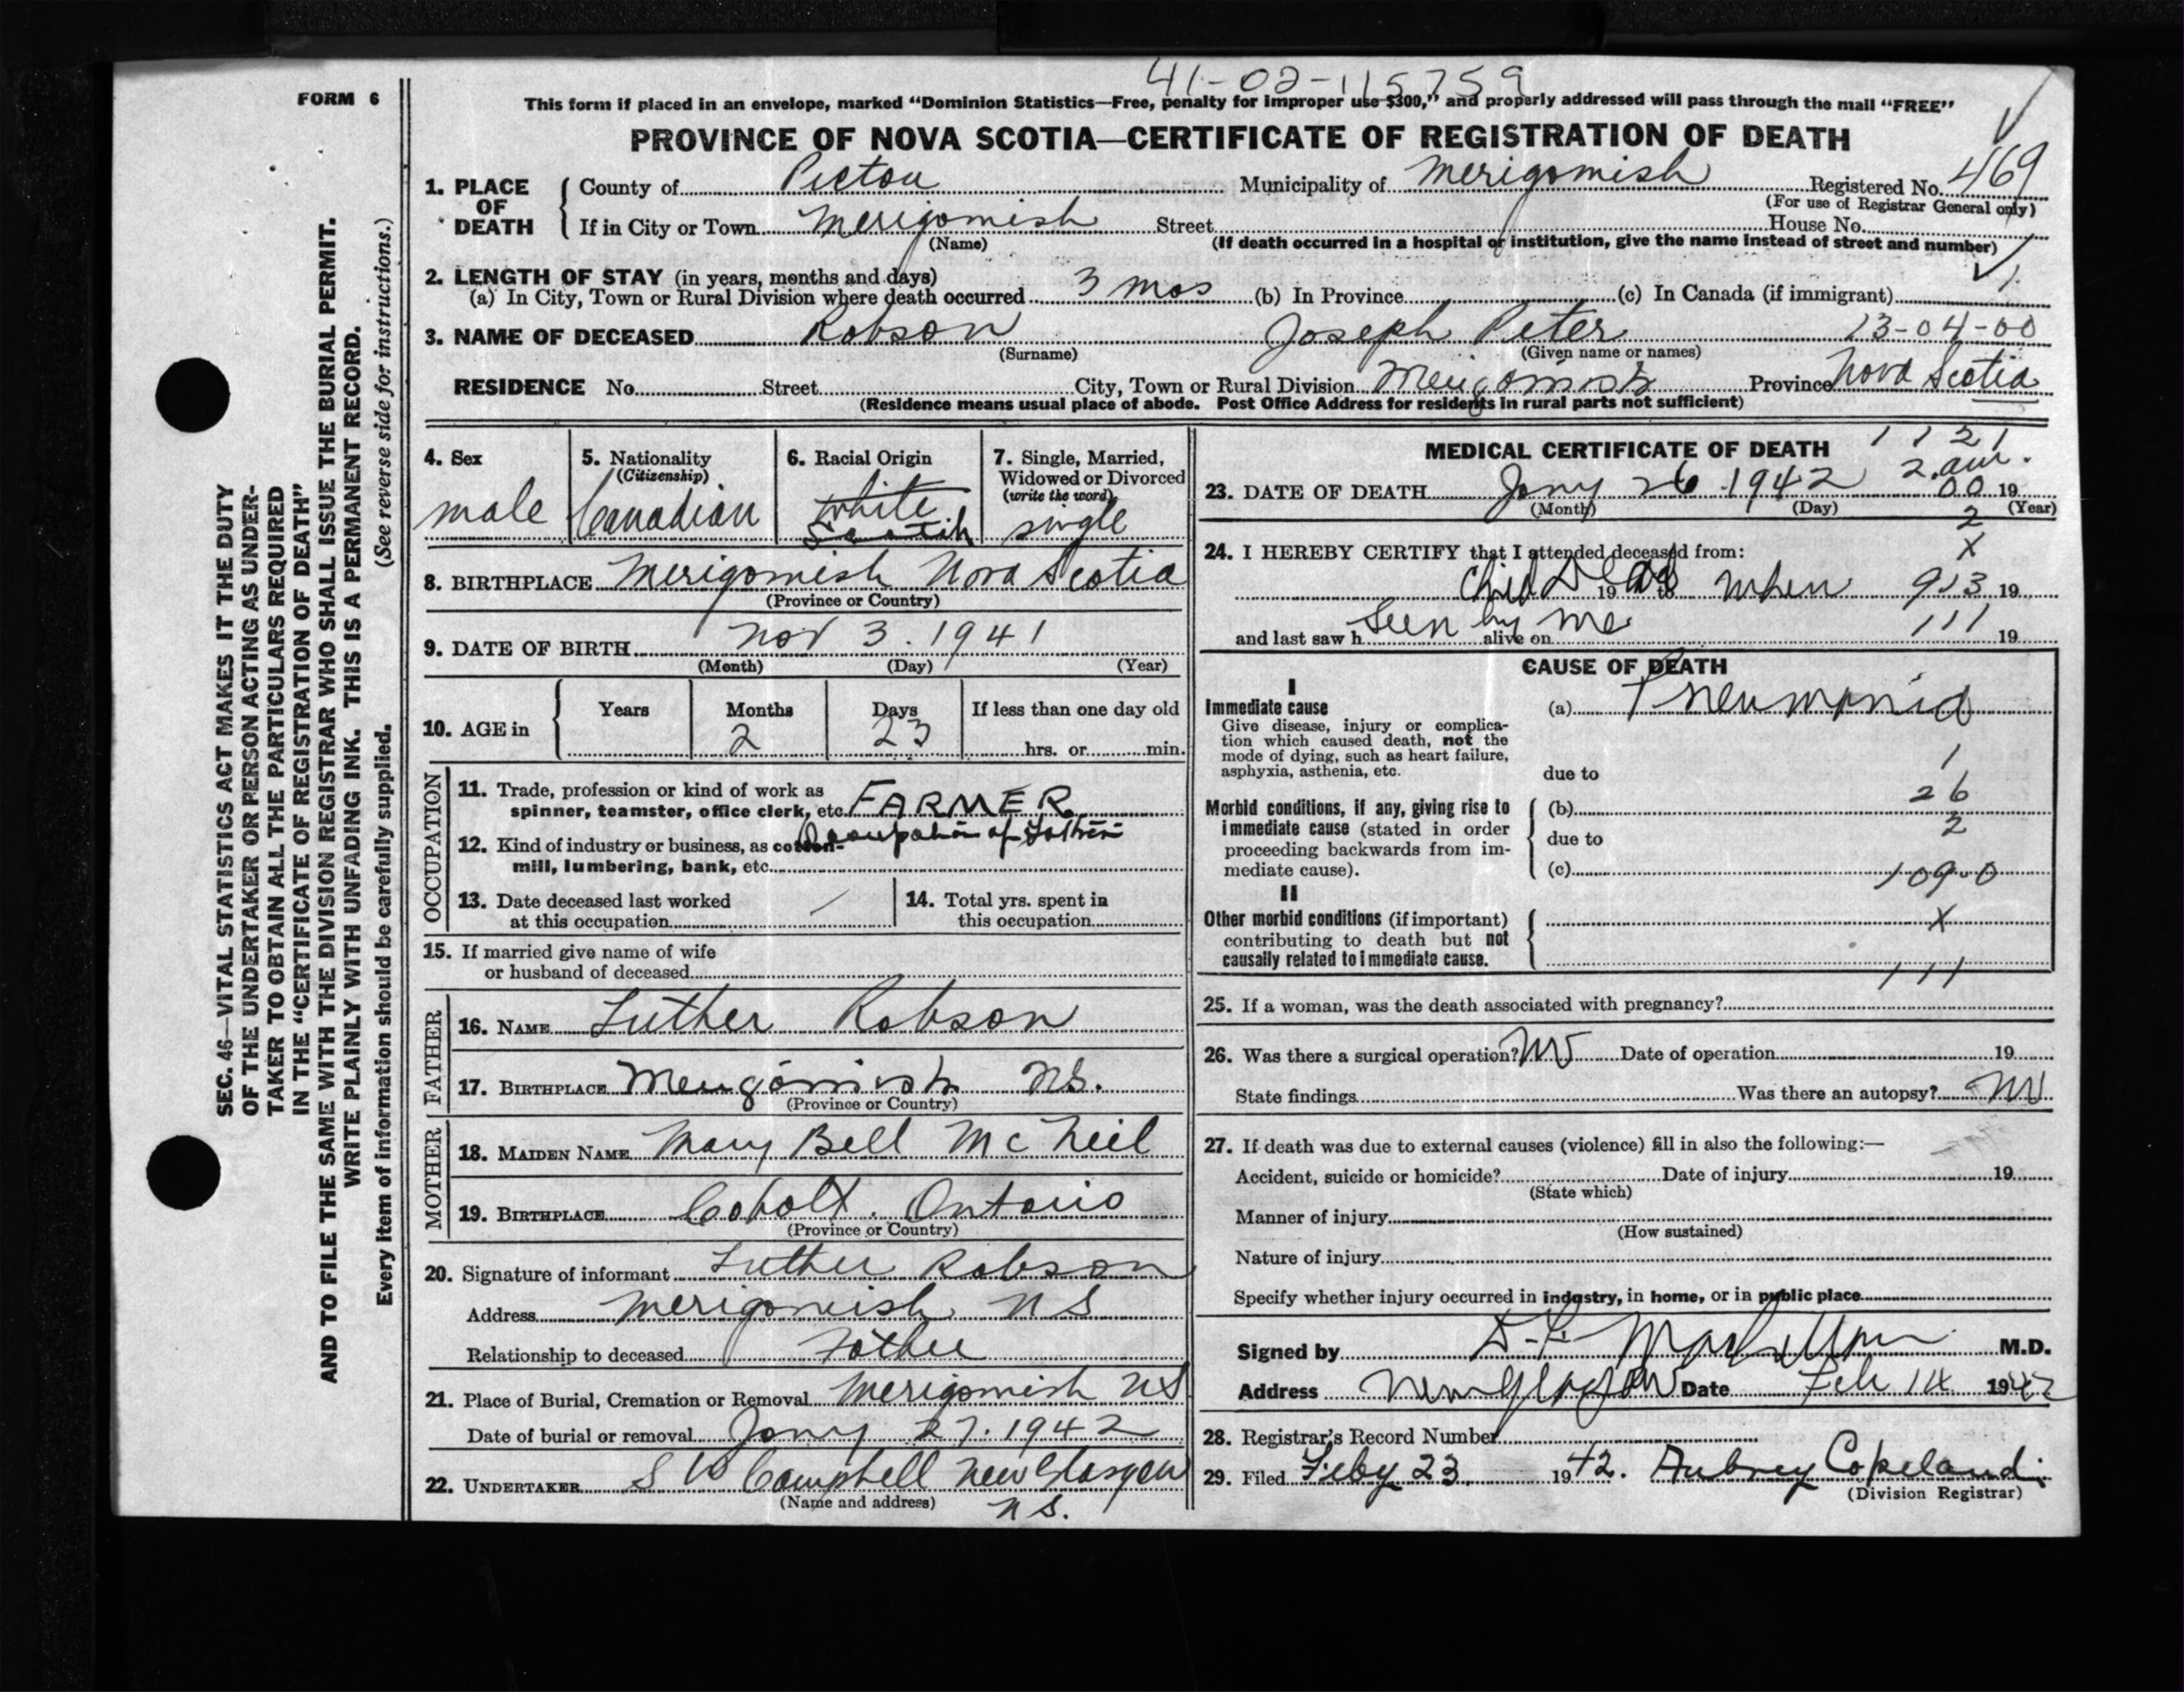 41-02-115759
FORM 6
This form if placed in an envelope, marked "Dominion Statistics—Free, penalty for improper use $300," and properly addressed will pass through the mail "FREE"
PROVINCE OF NOVA SCOTIA—CERTIFICATE OF REGISTRATION OF DEATH
1. PLACE OF DEATH County of Pictou Municipality of Merigomish Registered No. 469
(For use of Registrar General only)
If in City or Town Merigomish Street House No.
(Name) (If death occurred in a hospital or institution, give the name instead of street and number)
2. LENGTH OF STAY (in years, months and days)
(a) In City, Town or Rural Division where death occurred 3 mos (b) In Province (c) In Canada (if immigrant)
3. NAME OF DECEASED Robson Joseph Peter 13-04-00
(Surname) (Given name or names)
RESIDENCE No. Street City, Town or Rural Division Merigomish Province Nova Scotia
(Residence means usual place of abode. Post Office Address for residents in rural parts not sufficient)
SEC. 46—VITAL STATISTICS ACT MAKES IT THE DUTY
OF THE UNDERTAKER OR PERSON ACTING AS UNDER-
TAKER TO OBTAIN ALL THE PARTICULARS REQUIRED
IN THE "CERTIFICATE OF REGISTRATION OF DEATH"
AND TO FILE THE SAME WITH THE DIVISION REGISTRAR WHO SHALL ISSUE THE BURIAL PERMIT.
WRITE PLAINLY WITH UNFADING INK. THIS IS A PERMANENT RECORD.
Every item of information should be carefully supplied. (See reverse side for instructions.)
4. Sex
male
5. Nationality
(Citizenship)
Canadian
6. Racial Origin
white
Scotish
7. Single, Married,
Widowed or Divorced
(write the word)
single
8. BIRTHPLACE Merigomish Nova Scotia
(Province or Country)
9. DATE OF BIRTH Nov 3. 1941
(Month) (Day) (Year)
10. AGE in Years Months Days If less than one day old
2 23 hrs. or min.
OCCUPATION
11. Trade, profession or kind of work as
spinner, teamster, office clerk, etc. FARMER
Occupation of Father
12. Kind of industry or business, as cotton-
mill, lumbering, bank, etc.
13. Date deceased last worked
at this occupation
14. Total yrs. spent in
this occupation
15. If married give name of wife
or husband of deceased
FATHER
16. NAME Luther Robson
17. BIRTHPLACE Merigomish NS.
(Province or Country)
MOTHER
18. MAIDEN NAME Mary Bell McNeil
19. BIRTHPLACE Cobolt. Ontario
(Province or Country)
20. Signature of informant Luther Robson
Address Merigomish NS
Relationship to deceased Father
21. Place of Burial, Cremation or Removal Merigomish NS
Date of burial or removal Jany 27. 1942
22. UNDERTAKER S W Campbell New Glasgow
(Name and address) N S.
MEDICAL CERTIFICATE OF DEATH 1121
2. am.
23. DATE OF DEATH Jany 26 1942 00 19
(Month) (Day) (Year)
2
24. I HEREBY CERTIFY that I attended deceased from: X
Child Dead when 913 19
and last saw h seen by me alive on 111 19
CAUSE OF DEATH
I
Immediate cause
Give disease, injury or complica-
tion which caused death, not the
mode of dying, such as heart failure,
asphyxia, asthenia, etc.
(a) Pneumonia
1
due to
Morbid conditions, if any, giving rise to
immediate cause (stated in order
proceeding backwards from im-
mediate cause).
(b) 26
due to 2
(c) 109-0
II
Other morbid conditions (if important)
contributing to death but not
causally related to immediate cause.
X
111
25. If a woman, was the death associated with pregnancy?
26. Was there a surgical operation? No Date of operation 19
State findings Was there an autopsy? No
27. If death was due to external causes (violence) fill in also the following:—
Accident, suicide or homicide? Date of injury 19
(State which)
Manner of injury
(How sustained)
Nature of injury
Specify whether injury occurred in industry, in home, or in public place
Signed by M.D.
Address New Glasgow Date Feb 14 1942
28. Registrar's Record Number
29. Filed Feby 23 1942. Aubrey Copeland
(Division Registrar)